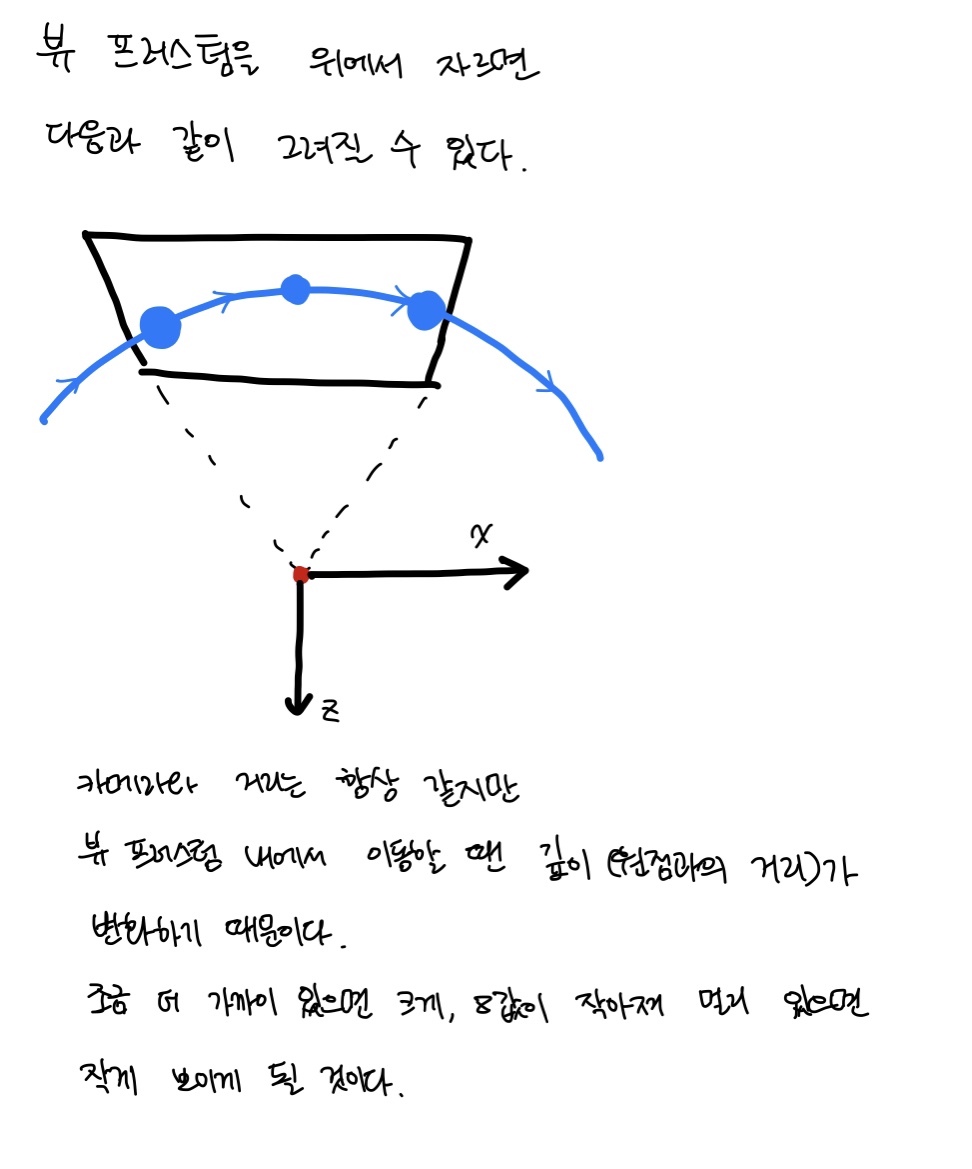 뷰 프러스텀을 위에서 자르면
다음과 같이 그려질 수 있다.
x
z
카메라와 거리는 항상 같지만
뷰 프러스텀 내에서 이동할 땐 깊이 (원점과의 거리)가
변화하기 때문이다.
조금 더 가까이 있으면 크게, z값이 작아져 멀리 있으면
작게 보이게 될 것이다.